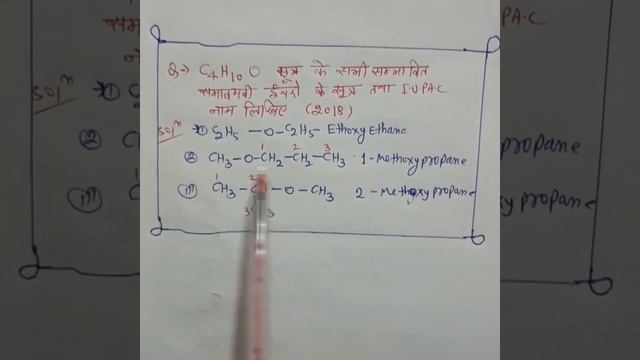 Q→ C4H10O सूत्र के सभी सम्भावित
समावयवी ईथरो के सूत्र तथा I.U.PAC
नाम लिखिए (2018)
Solⁿ ① C2H5 — O — C2H5 - Ethoxy Ethane
② CH3 — O — CH2 — CH2 — CH3 · 1 - Methoxy propane
1 2 3
(iii) CH3 — C — O — CH3 2 - Methoxy propane
1 2
3 3